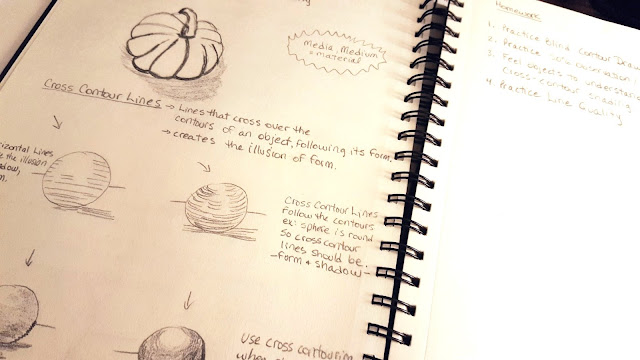 Media, Medium
= material
Cross Contour Lines → Lines that cross over the
contours of an object, following its form.
→ creates the illusion of form.
Lines
the illusion
Cross Contour Lines
Follow the contours
ex: sphere is round
so cross contour
lines should be.
-form + shadow-
Use cross contour
Homework
1. Practice Blind Contour
2. Practice
3. Feel objects to understand
Cross-contour Shading
4. Practice Line Quality